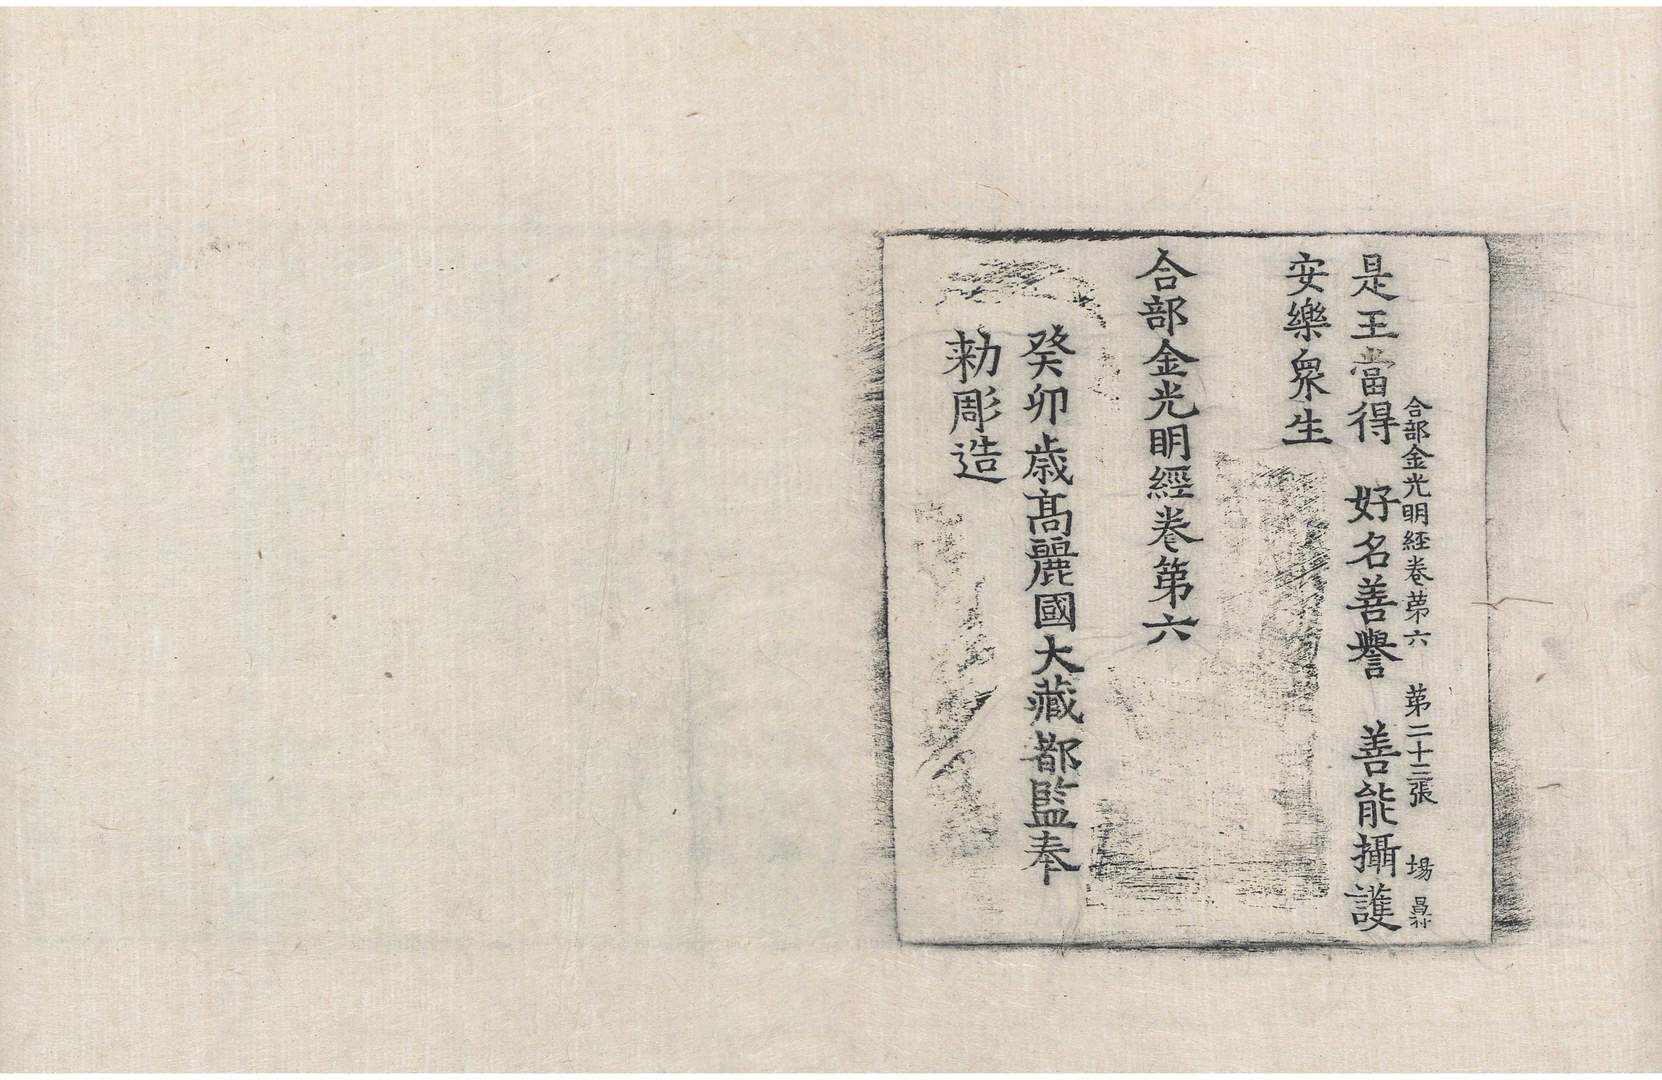 合部金光明経巻苐六 苐二十三張 場
是王當得 好名善譽 善能攝護
安樂衆生
合部金光明經卷第六
癸卯歲高麗國大藏都監奉
勅彫造